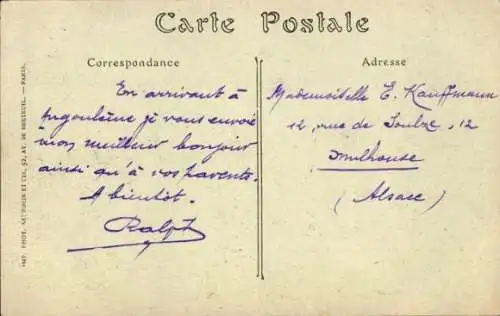 Carte Postale
Correspondance
En arrivant à
Angoulême je vous envoie
mon meilleur bonjour
ainsi qu'à vos parents.
A bientôt.
Ralph
Adresse
Mademoiselle E. Kauffmann
12, rue de Soultz, 12
Mulhouse
(Alsace)
IMP. PHOT. NEURDEIN ET CIE, 52, AV. DE BRETEUIL. — PARIS.